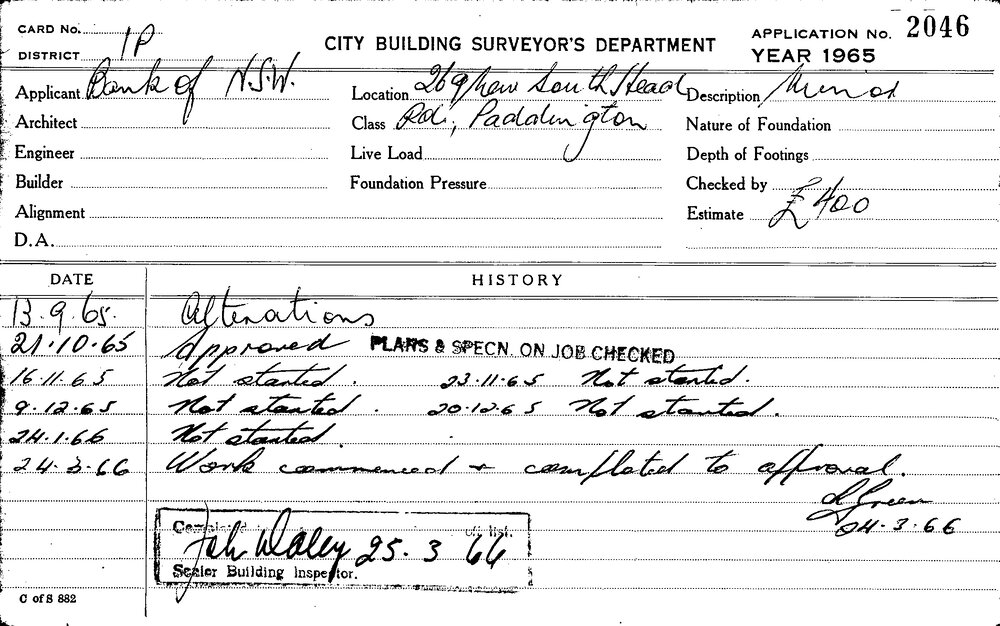 CARD No. 1P
DISTRICT
CITY BUILDING SURVEYOR'S DEPARTMENT
APPLICATION No. 2046
YEAR 1965
Applicant Bank of N.S.W.
Architect
Engineer
Builder
Alignment
D.A.
Location 269 New South Head
Class Rd., Paddington
Live Load
Foundation Pressure
Description Minor
Nature of Foundation
Depth of Footings
Checked by
Estimate £400
DATE HISTORY
13.9.65. Alterations
21.10.65 Approved PLANS & SPECN. ON JOB CHECKED
16.11.65 Not started. 23.11.65 Not started.
9.12.65 Not started. 20.12.65 Not started.
24.1.66 Not started.
24.3.66 Work commenced + completed to approval.
Green
24.3.66
list.
25.3.66
Senior Building Inspector.
C of S 882